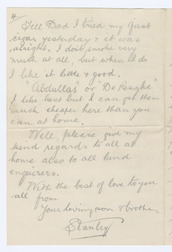 4/
Tell Dad I tried my Giant
cigar yesterday & it was
alright. I don't smoke very
much at all, but when I do
I like it little & good.
"Abdullas" or "De Reszke"
I like best but I can get them
much cheaper here than you
can at home.
Well please give my
kind regards to all at
home also to all kind
enquirers.
With the best of love to you
all from
Your loving son & brother
Stanley